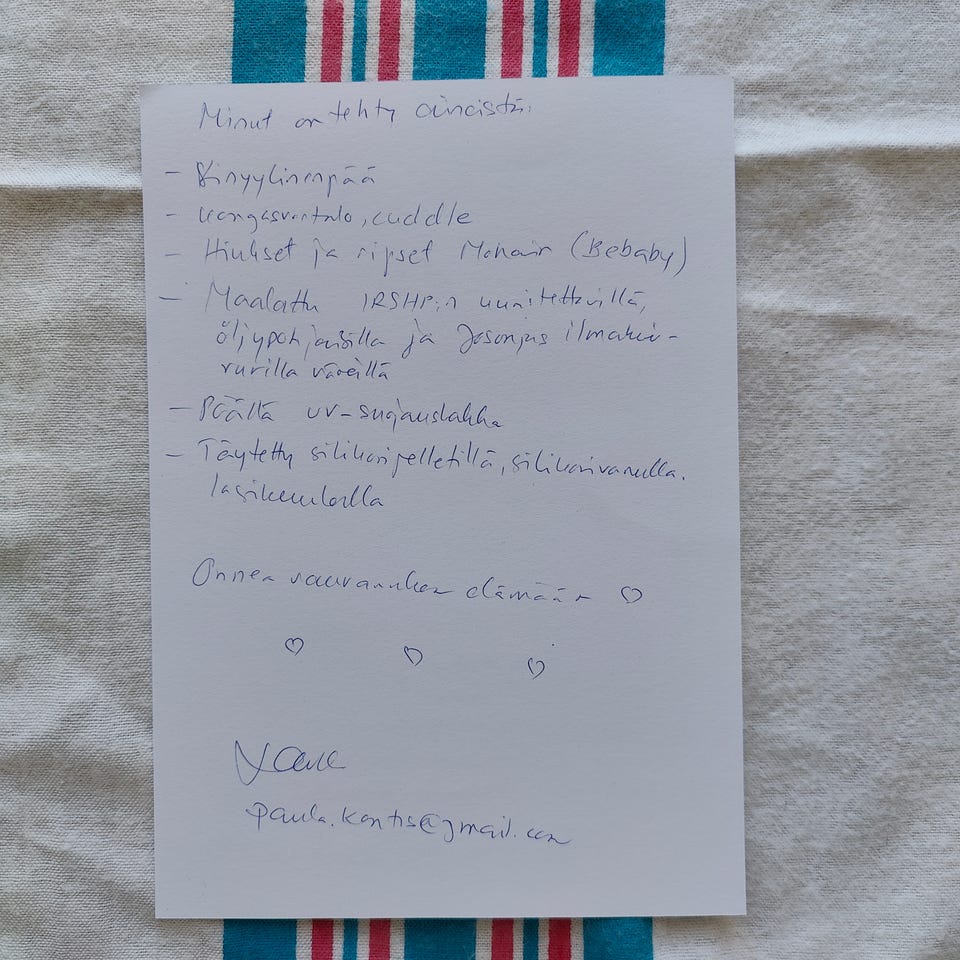 Minut on tehty aineista:
- Vinyylinenpää
- kangasvartalo, cuddle
- Hiukset ja ripset Mohair (Bebaby)
- Maalattu IRSHP:n uunitettavilla,
öljypohjaisilla ja Josonjas ilmakui-
vurilla väreillä
- Päällä uv-suojauslakka
- Täytetty silikonipelletillä, silikonivanulla.
lasikuulalla
Onnea vauvanuken elämään ♡
♡ ♡ ♡
paula.kontis@gmail.com